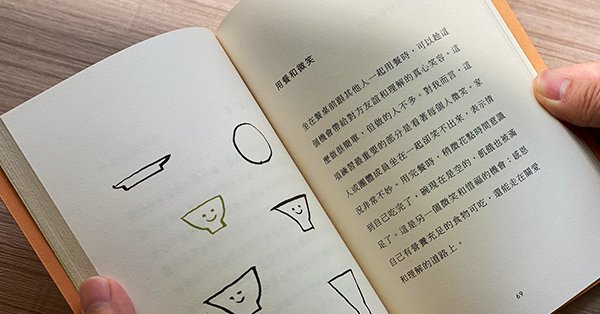 用餐和微笑
坐在餐桌前跟其他人一起用餐時，可以趁這
個機會帶給對方友誼和理解的真心笑容。這
麼做很簡單，但做的人不多。對我而言，這
項練習最重要的部分是看著每個人微笑。家
人或團體成員坐在一起卻笑不出來，表示情
況非常不妙。用完餐時，稍微花點時間意識
到自己吃完了，碗現在是空的，飢餓也被滿
足了。這是另一個微笑和惜福的機會：感恩
自己有營養充足的食物可吃，還能走在關愛
和理解的道路上。
69